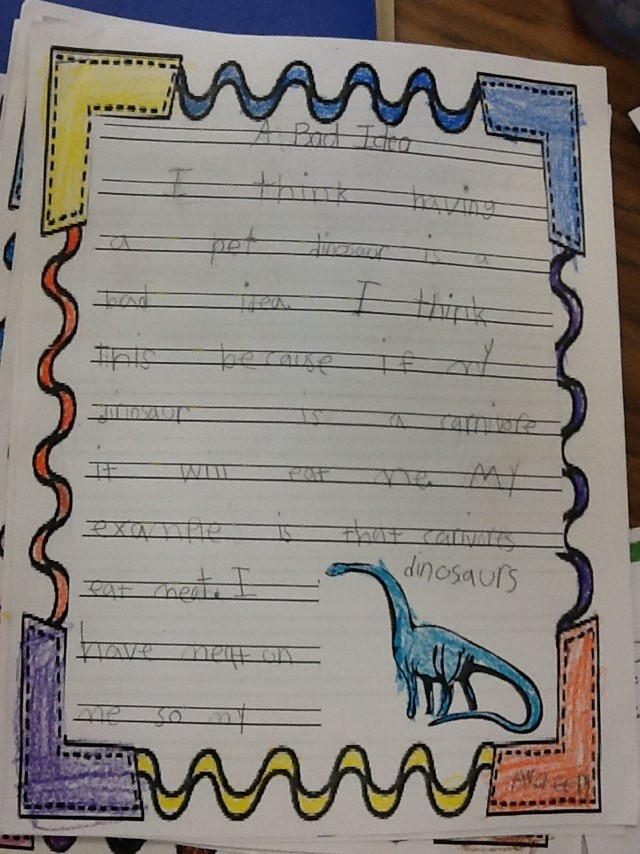 A Bad Idea
I think having
a pet dinosaur is a
bad idea. I think
this because if my
dinosaur is a carnivore
it will eat me. My
example is that carivores
eat meat. I dinosaurs
have meat on
me so my